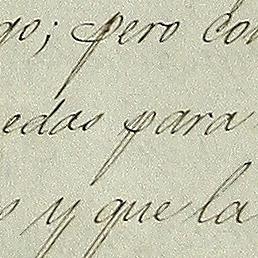 go; pero con
edas para
s y que la